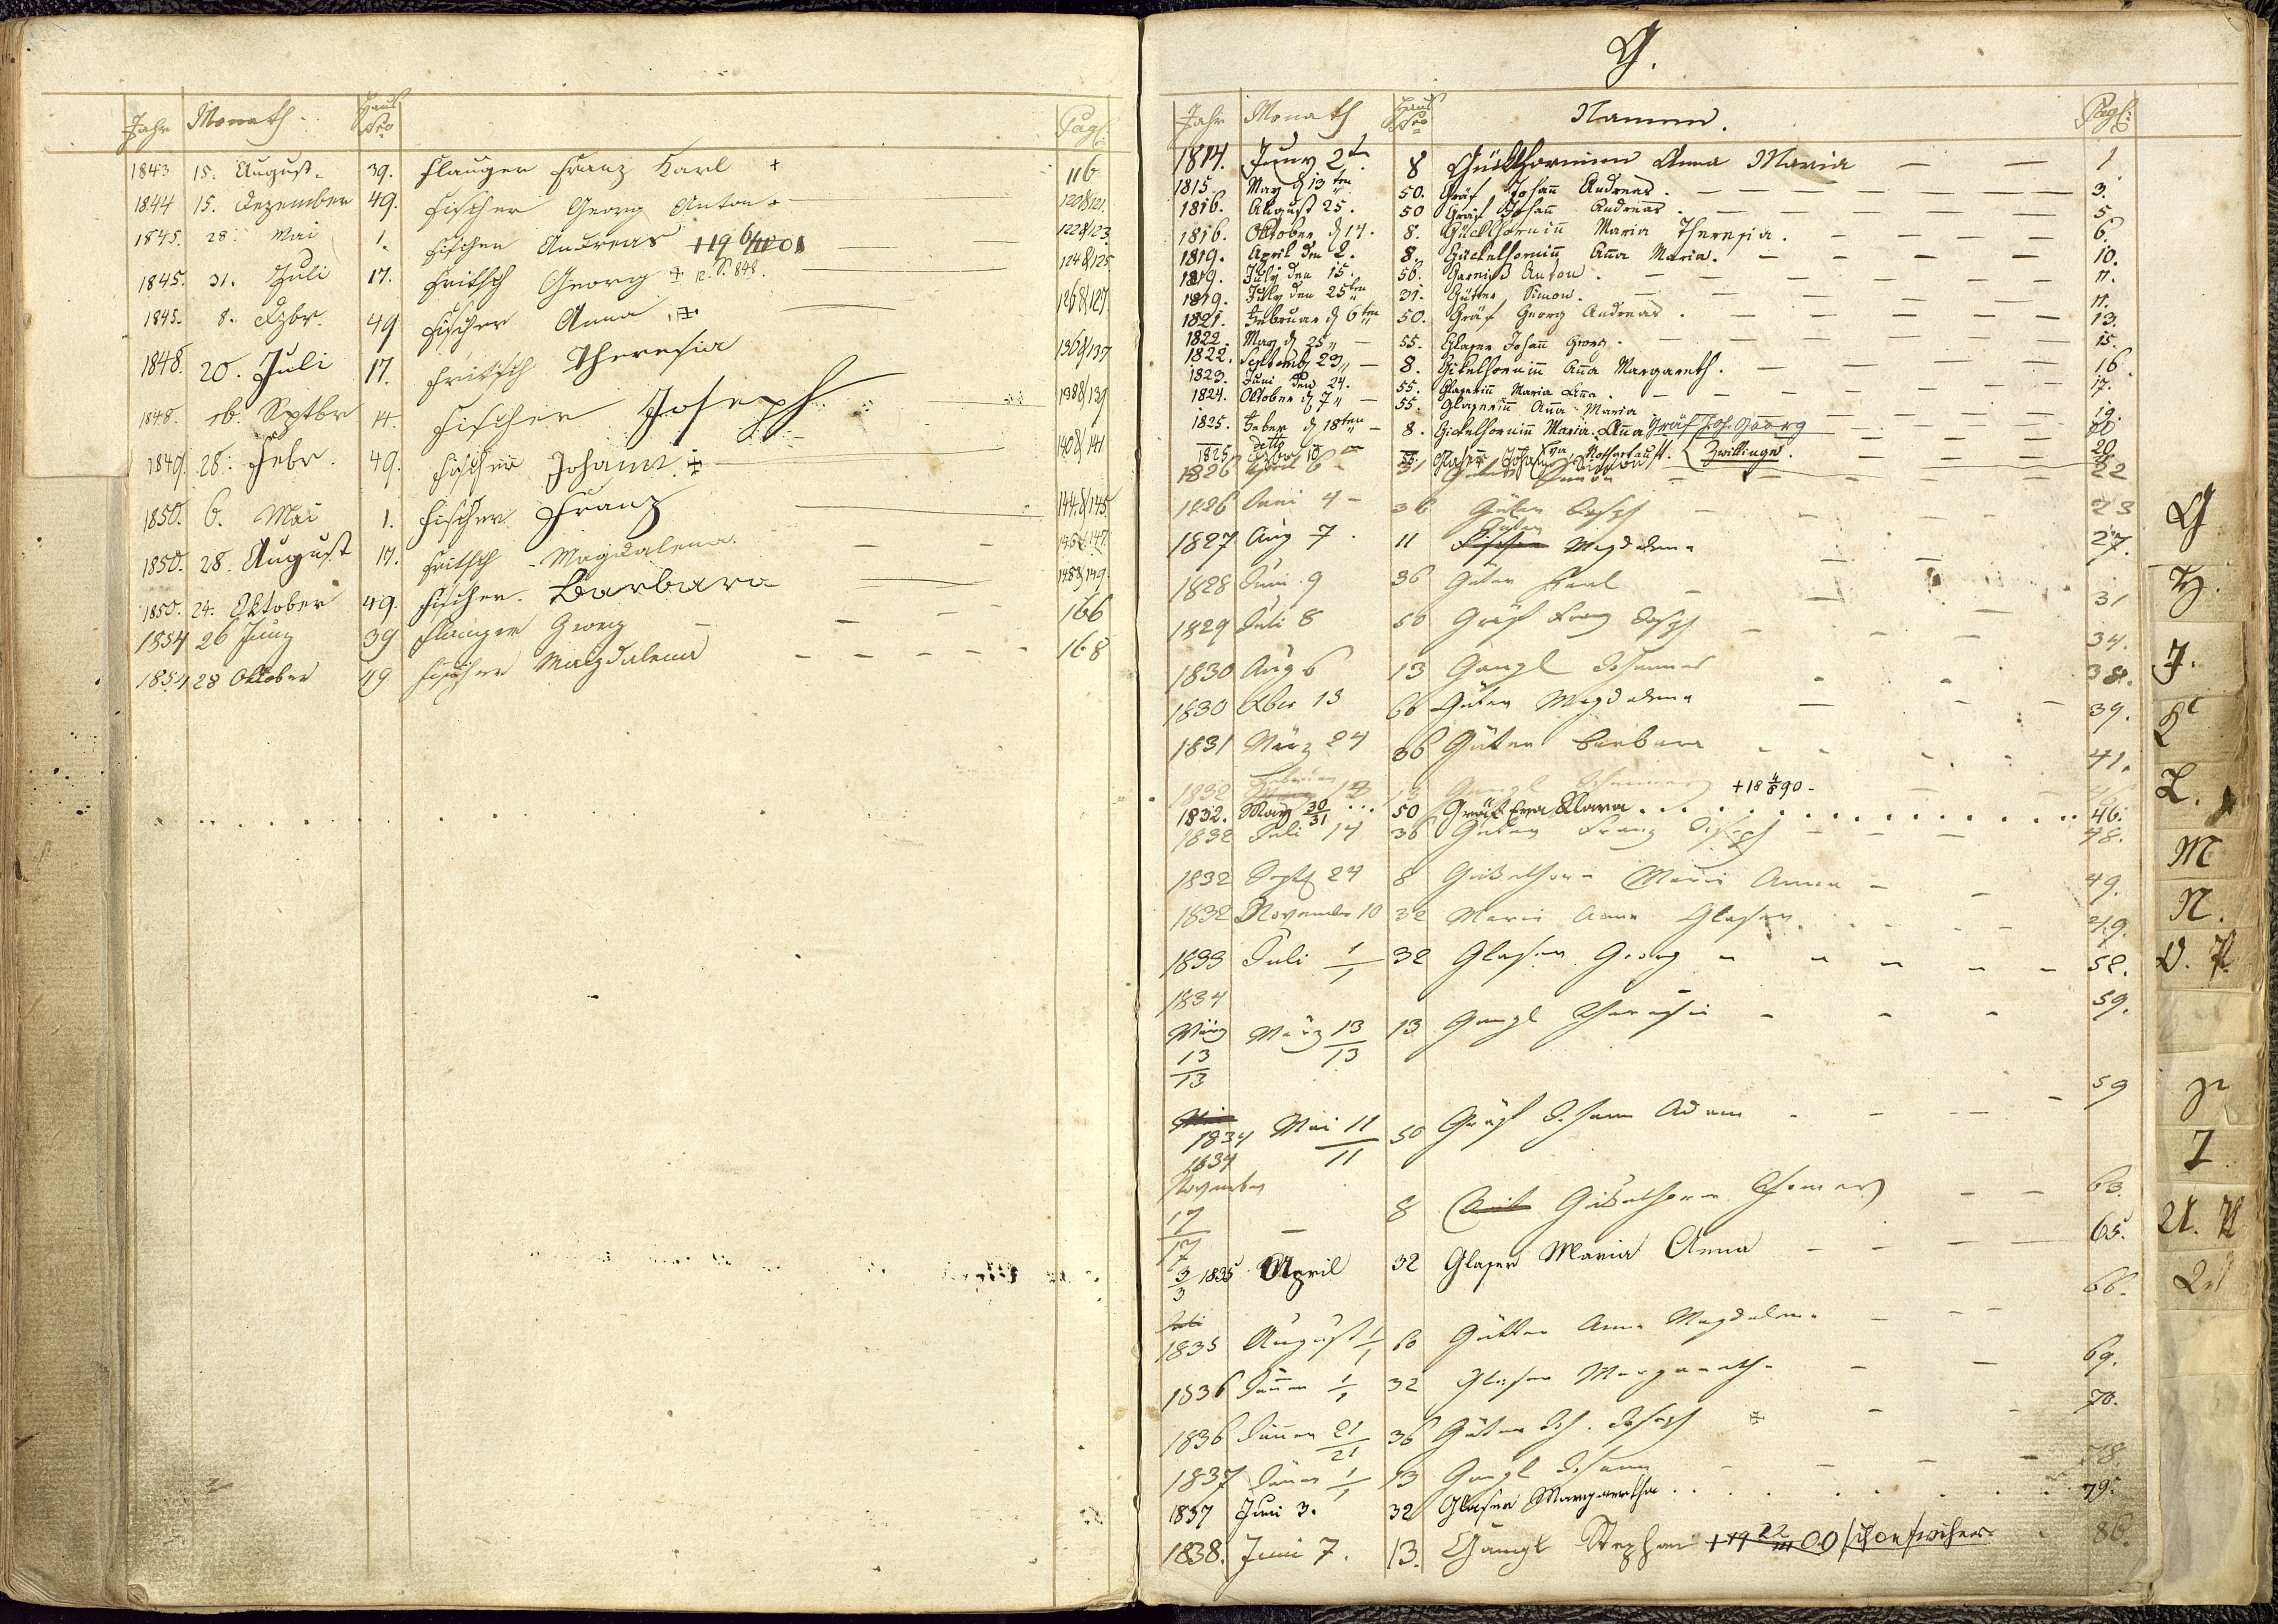 Jahr Monath Haus Nro Pagl:
1843 15. August. 39. Flauger Franz Karl + 116
1844 15. Dezember 49. Fischer Georg Anton + 120&121.
1845. 28. Mai 1. Fischer Andreas 122&123.
1845. 31. Juli 17. Fritsch Georg 124&125
1845. 8. Dzbr. 49 Fischer Anna 126&127.
1848. 20. Juli 17. Fritsch Theresia 136&137
1848. 16. Sptbr 14. Fischer Joseph 138&139
1849. 28. Febr. 49. Fischer Johann 140&141
1850. 6. Mai 1. Fischer Franz 144&145
1850. 28. August 17. Fritsch Magdalena 146&147.
1850. 24. Oktober 49. Fischer Barbara 148&149.
1854 26 Juny 39 Flauger Georg 166
1854 28 Oktober 49 Fischer Magdalena 168
G.
Jahr Monath Haus Nro Namen. Pagl:
1814. Juny 2t 8 Gücklhorninn Anna Maria 1
1815. May d 13ten 50. Gräf Johañ Andreas. 3.
1816. August 25. 50 Gräf Johañ Andreas. 5
1816. Oktober d 14. 8. Gückelhorniñ Maria Theresia. 6.
1819. April den 2. 8. Gückelhorniñ Aña Maria. 10.
1819. July den 15. 56. Anton. 11.
1819. July den 25ten 31. Gütter Simon. 11.
1821. Februar d 6ten 50. Gräf Georg Andreas. 13.
1822. May d 25 55. Glaser Johañ Georg. 15.
1822. Septemb 29 8. Gikelhorniñ Aña Margareth. 16.
1823. Juni den 24. 55. Glaseriñ Maria Aña. 17.
1824. Oktober d 7 55. Glaseriñ Aña Maria 19.
1825. Feber d 18ten 8. Gickelhorniñ Maria Aña Gräf Joh. Georg 20
1825 detto 55. Glaser Johañ Eva Nothgetauft. Zwillinge. 20
1826 April 6 31 Simon 22
1826 Juni 4 36 Güter Joseph 23
1827 Aug 7. 11 Güter Magdalena 27.
1828 Juni 9 36 Güter Karl 31
1829 Juli 8 50 Gräf Joseph 34.
1830 Aug 6 13 Gangl Johannes 38.
1830 Xber 13 60 Güter Magdalena 39.
1831 März 24 36 Güter Barbara 41.
1832 Februar 13 Gangl +18 4/8 90
1832. May 30/31 50 Gräf Eva Klara 46.
1832 Juli 14 36 Güter Franz Joseph 48.
1832 Sept 24 8 Gickelhorn Maria Anna 49.
1832 November 10 32 Maria Anna Glaser 49.
1833 Juli 1/1 32 Glaser Georg 52.
1834
März 13/13 März 13/13 13 Gangl Theresia 59.
1834 Mai 11/11 50 Gräf Johann Adam 59
1834
November 17/17 8 Gickelhorn Thomas 63.
3/3 1835 April 32 Glaser Maria Anna 65.
Juli
1835 August 1/1 60 Gütter Anna Magdalena 66.
1836 Jänner 1/1 32 Glaser Margareth 69.
1836 Jänner 21/21 36 Güter Joh. Joseph 70.
1837 Jänner 1/1 13 Gangl Johann 78.
1837 Juni 3. 32 Glaser Margaretha 79.
1838. Juni 7. 13. Gangl Stephan 86.
G
H.
J.
K
L.
M
N.
O. P.
T